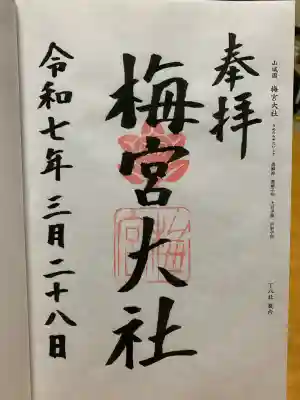 山城国 梅宮大社
奉拝
梅宮大社
梅宮
令和七年三月二十八日